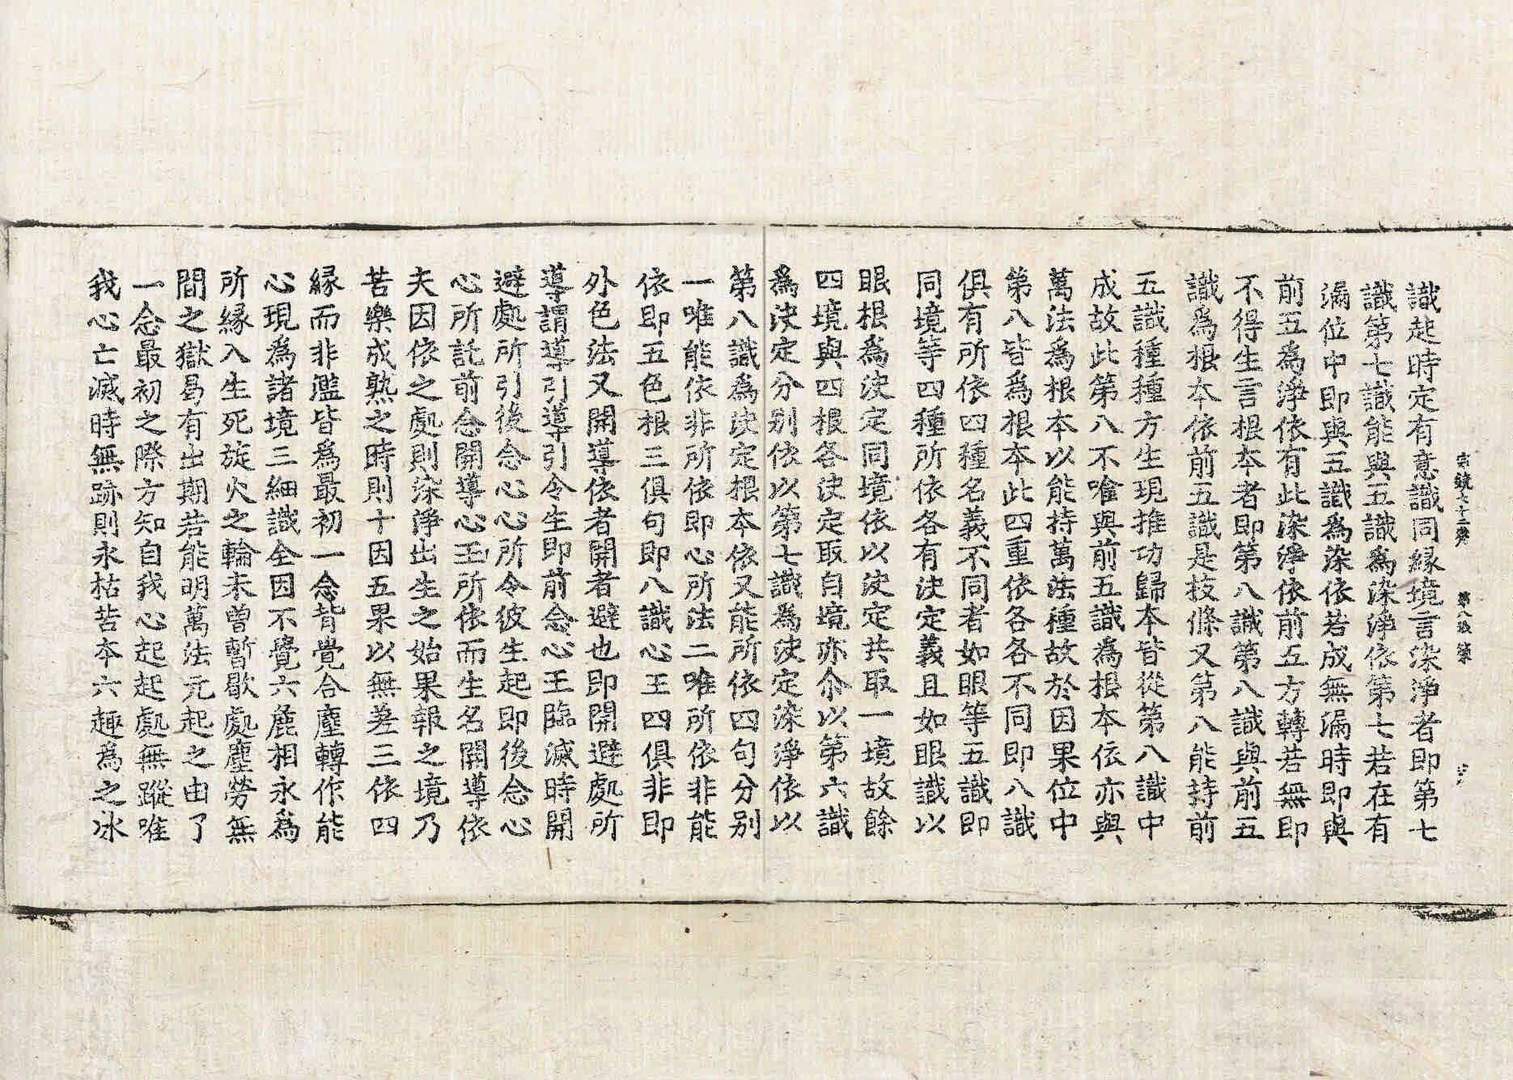 宗鏡七十二卷　第八張　策
識起時定有意識同緣境言染淨者即第七
識第七識能與五識為染淨依第七若在有
漏位中即與五識為染依若成無漏時即與
前五為淨依有此染淨依前五方轉若無即
不得生言根本者即第八識第八識與前五
識為根本依前五識是枝條又第八能持前
五識種種方生現推功歸本皆從第八識中
成故此第八不唯與前五識為根本依亦與
萬法為根本以能持萬法種故於因果位中
第八皆為根本此四重依各各不同即八識
俱有所依四種名義不同者如眼等五識即
同境等四種所依各有決定義且如眼識以
眼根為決定同境依以決定共取一境故餘
四境與四根各決定取自境亦尒以第六識
為決定分别依以第七識為決定染淨依以
第八識為決定根本依又能所依四句分别
一唯能依非所依即心所法二唯所依非能
依即五色根三俱句即八識心王四俱非即
外色法又開導依者開者避也即開避處所
導謂導引導引令生即前念心王臨滅時開
避處所引後念心心所令彼生起即後念心
心所託前念開導心王所依而生名開導依
夫因依之處則染淨出生之始果報之境乃
苦樂成熟之時則十因五果以無差三依四
緣而非濫皆為最初一念背覺合塵轉作能
心現為諸境三細識全因不覺六麁相永為
所緣入生死旋火之輪未曾暫歇處塵勞無
間之獄曷有出期若能明萬法元起之由了
一念最初之際方知自我心起起處無蹤唯
我心亡滅時無跡則永枯苦本六趣為之冰